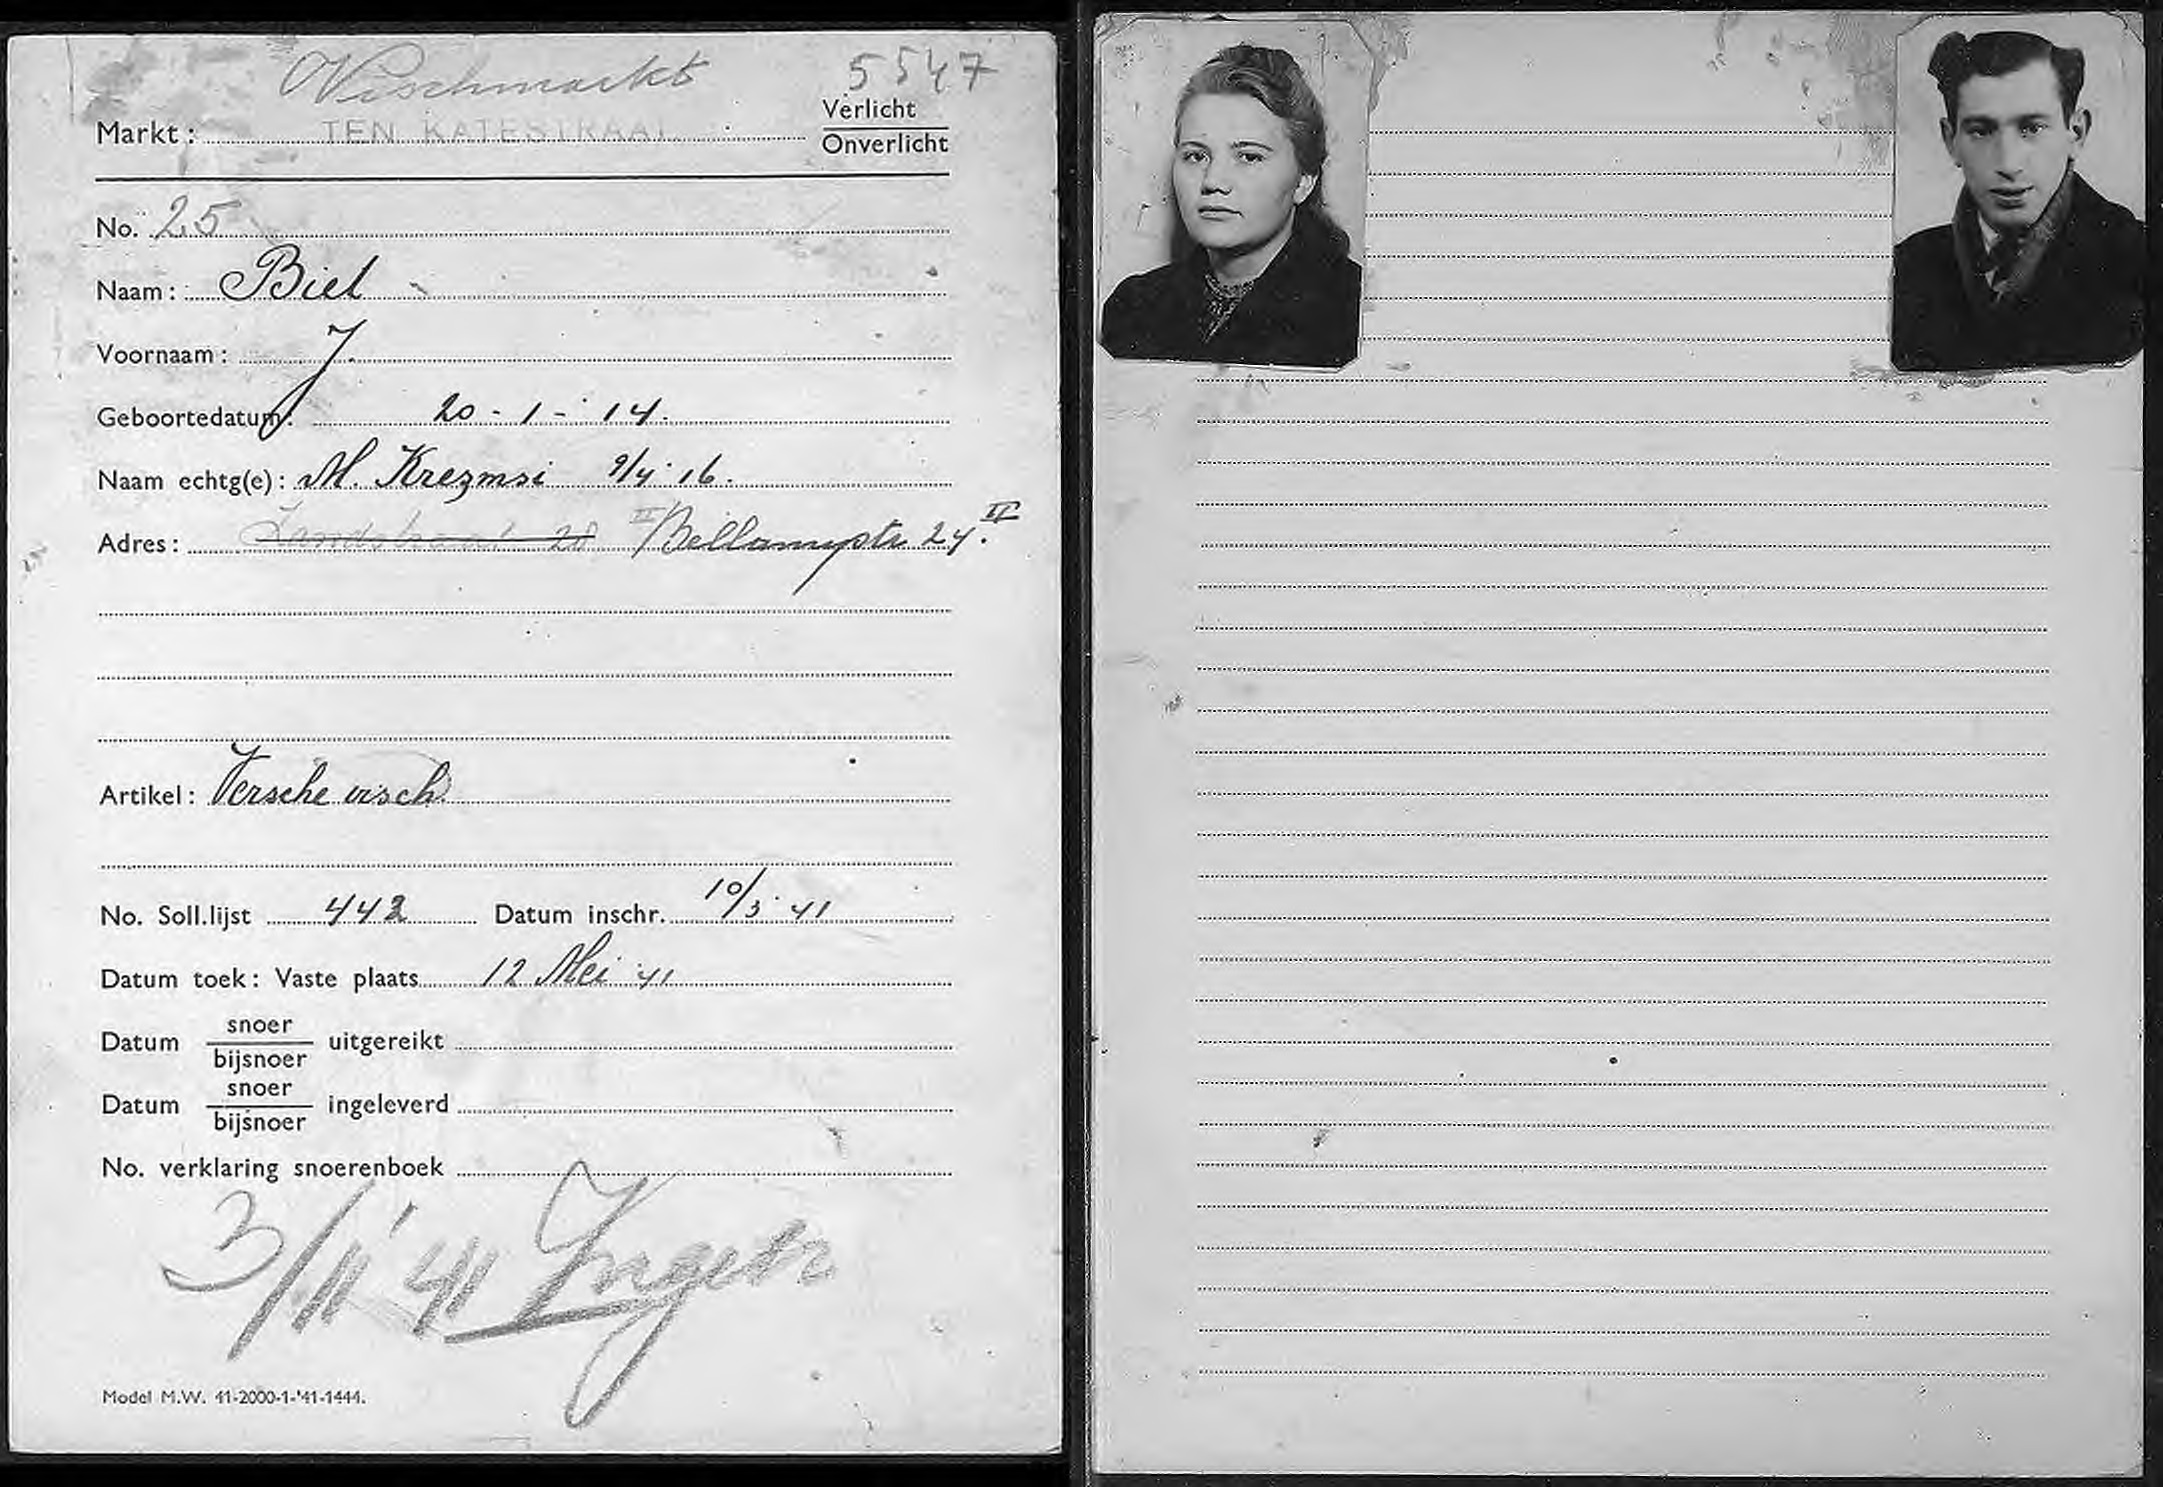 Vischmarkt 5547
Markt: TEN KATESTRAAT
Verlicht
Onverlicht
No. 25
Naam: Biet
Voornaam: J.
Geboortedatum: 20-1-'14.
Naam echtg(e): M. Krezmsi 9/4 '16.
Adres: Zandstraat 28 II Bellamystr 24. II
Artikel: Versche visch
No. Soll.lijst 442 Datum inschr. 10/3 '41
Datum toek: Vaste plaats 12 Mei '41
Datum snoer/bijsnoer uitgereikt
Datum snoer/bijsnoer ingeleverd
No. verklaring snoerenboek
3/11 '41 Ingetr
Model M.W. 41-2000-1-'41-1444.